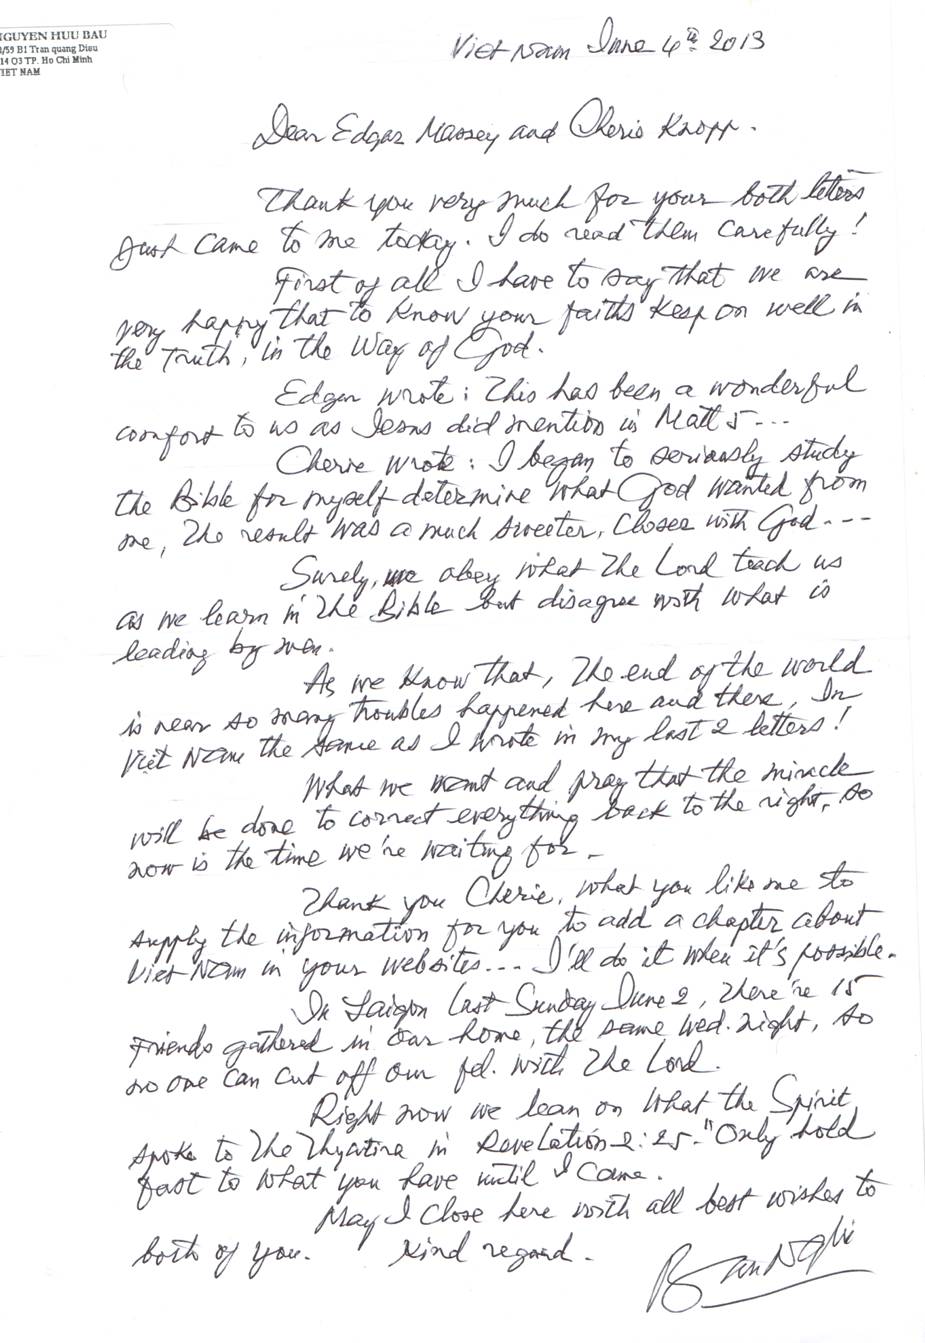 NGUYEN HUU BAU
/59 B1 Tran quang Dieu
14 Q3 TP. Ho Chi Minh
VIET NAM
Viet Nam June 4th 2013
Dear Edgar Massey and Cherie Kropp.
Thank you very much for your both letters
just came to me today. I do read them carefully!
First of all I have to say that we are
very happy that to know your faiths keep on well in
the Truth, in the Way of God.
Edgar wrote: This has been a wonderful
comfort to us as Jesus did mention in Matt 5---
Cherie wrote: I began to seriously study
the Bible for myself determine what God wanted from
me, The result was a much sweeter, closer with God---
Surely, we obey what The Lord teach us
as we learn in The Bible but disagree with what is
leading by men.
As we know that, The end of the world
is near so many troubles happened here and there, In
Viet Nam the same as I wrote in my last 2 letters!
What we want and pray that the miracle
will be done to correct everything back to the right, so
now is the time we're waiting for -
Thank you Cherie, what you like me to
supply the information for you to add a chapter about
Viet Nam in your websites... I'll do it when it's possible.
In Saigon last Sunday June 2, there're 15
Friends gathered in our home, the same wed. night, so
no one can cut off our fel. with The Lord.
Right now we lean on what the Spirit
spoke to The Thyatira in Revelation 2:25-"Only hold
fast to what you have until I come.
May I close here with all best wishes to
both of you. Kind regard.